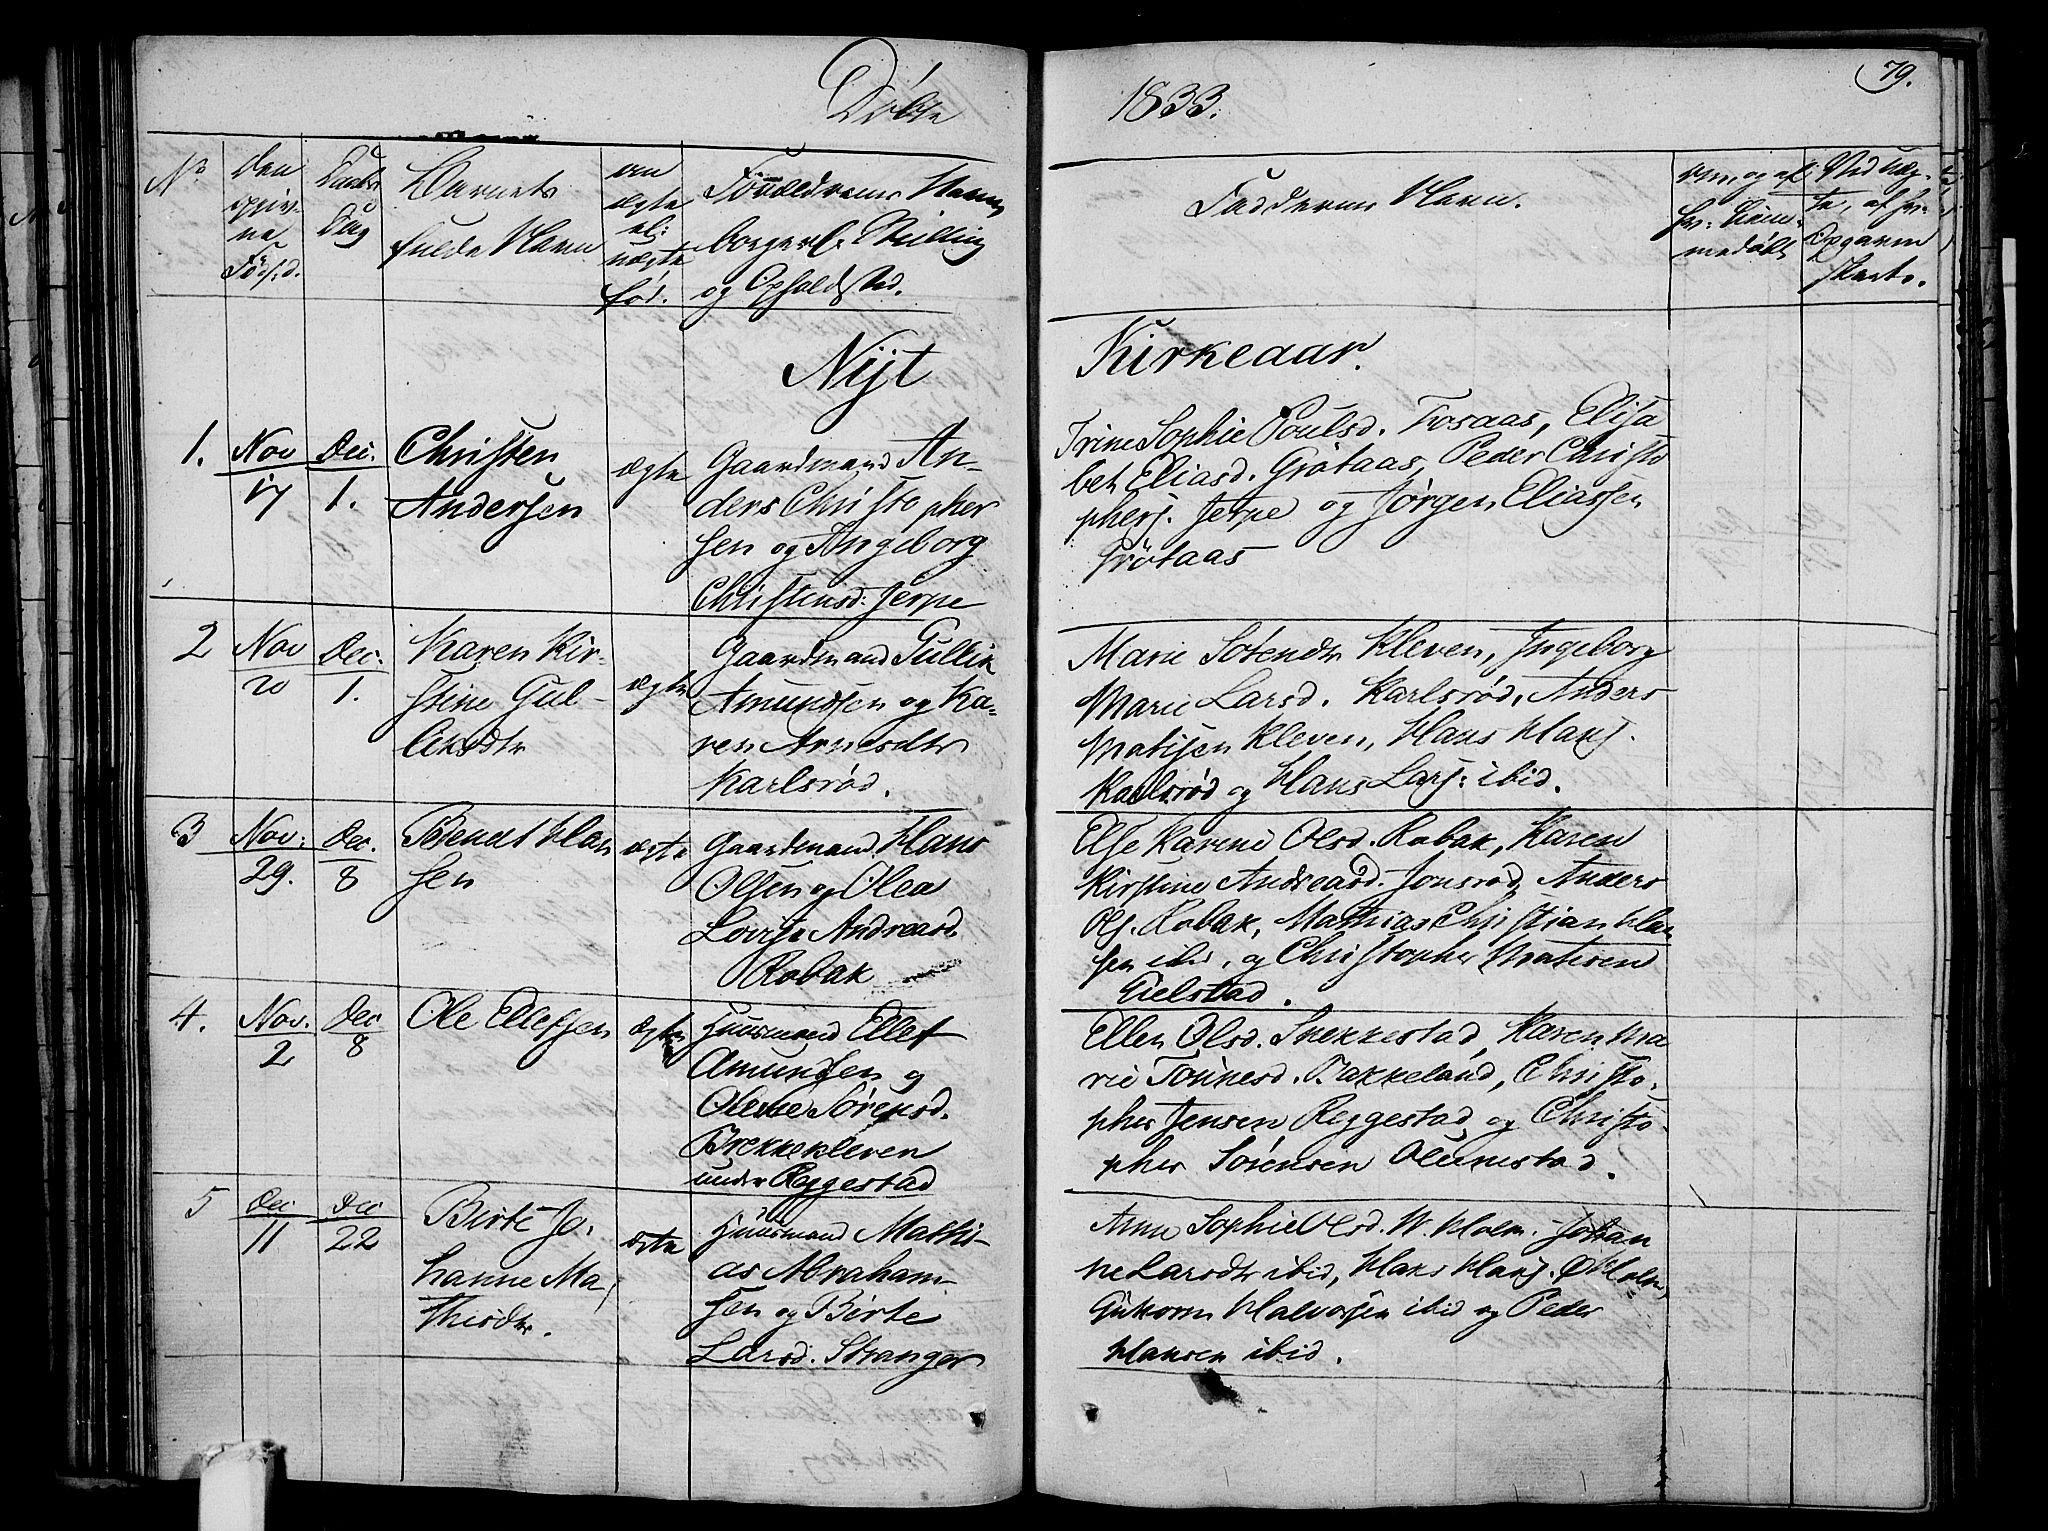 Døbte
1833.
79.
No
Den
opgivne
Føds:d.
Daabs
Dag
Barnets
fulde Navn
om
ægte
el:
uægte
fød.
Forældrenes Navn
borgerl. Stilling
og Opholdsted.
Faddernes Navn.
Nijt
Kirkeaar.
1.
Nov
17
Dec.
1.
Christen
Andersen
ægte
Gaardmand An-
ders Christopher
sen og Angeborg
Christensd: Jerpe
Trine Sophie Poulsd. Fosaas, Elisa
bet Eliasd. Grötaas, Peder Christo
phers. Jerpe og Jørgen Eliassen
Grötaas
2
Nov
20
Dec.
1.
Karen Kir-
stine Gul-
liksdtr
ægte
Gaardmand Gullik
Amundsen og Ka-
ren Arnesdtr
Karlsrød.
Marie Sörendtr Kleven, Ingeborg
Marie Larsd. Karlsrød, Anders
Matisen Kleven, Hans Hans.
Karlsrød og Hans Lars: ibid.
3
Nov:
29.
Dec.
8
Berendt Han
sen
ægte
Gaardmand Hans
Olsen og Olea
Lovise Andreasd.
Robak
Else Karine Olsd. Robak, Karen
Kirstine Andreasd. Jonsrød, Anders
Ols. Robak, Mathias Christian Han
sen ibid, og Christopher Matisen
Gielstad.
4.
Nov.
2
Dec
8
Ole Ellefsen
ægte
Huusmand Ellef
Amundsen og
Olene Sørensd.
Brekkekleven
under Reggestad
Ellen Olsd. Snekkestad, Karen Ma
rie Tönnesd. Bakkeland, Christo-
pher Jensen Reggestad og Christo-
pher Sörensen Olumstad.
5
Dec
11
Dec
22
Birte Jo-
hanne Ma-
thisdtr.
ægte
Huusmand Mathi-
as Abraham-
sen og Birte
Larsd. Stranger
Anne Sophie Olsd. W. Holm. Johan
ne Larsdtr ibid, Hans Hans. Ø Holm
Gutorm Halvorsen ibid og Peder
Hansen ibid.